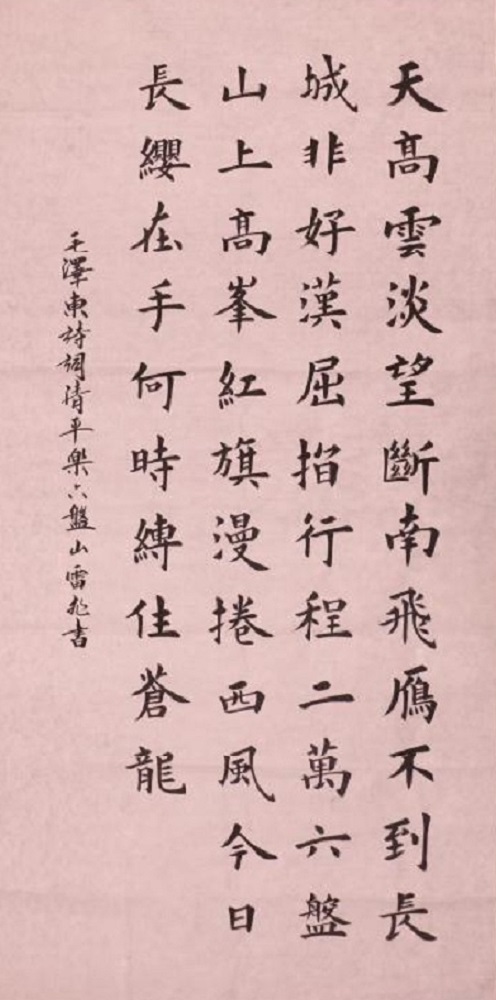 天高雲淡望斷南飛雁不到長
城非好漢屈指行程二萬六盤
山上高峯紅旗漫捲西風今日
長纓在手何時縛住蒼龍
毛澤東詩詞清平樂六盤山雷兆書